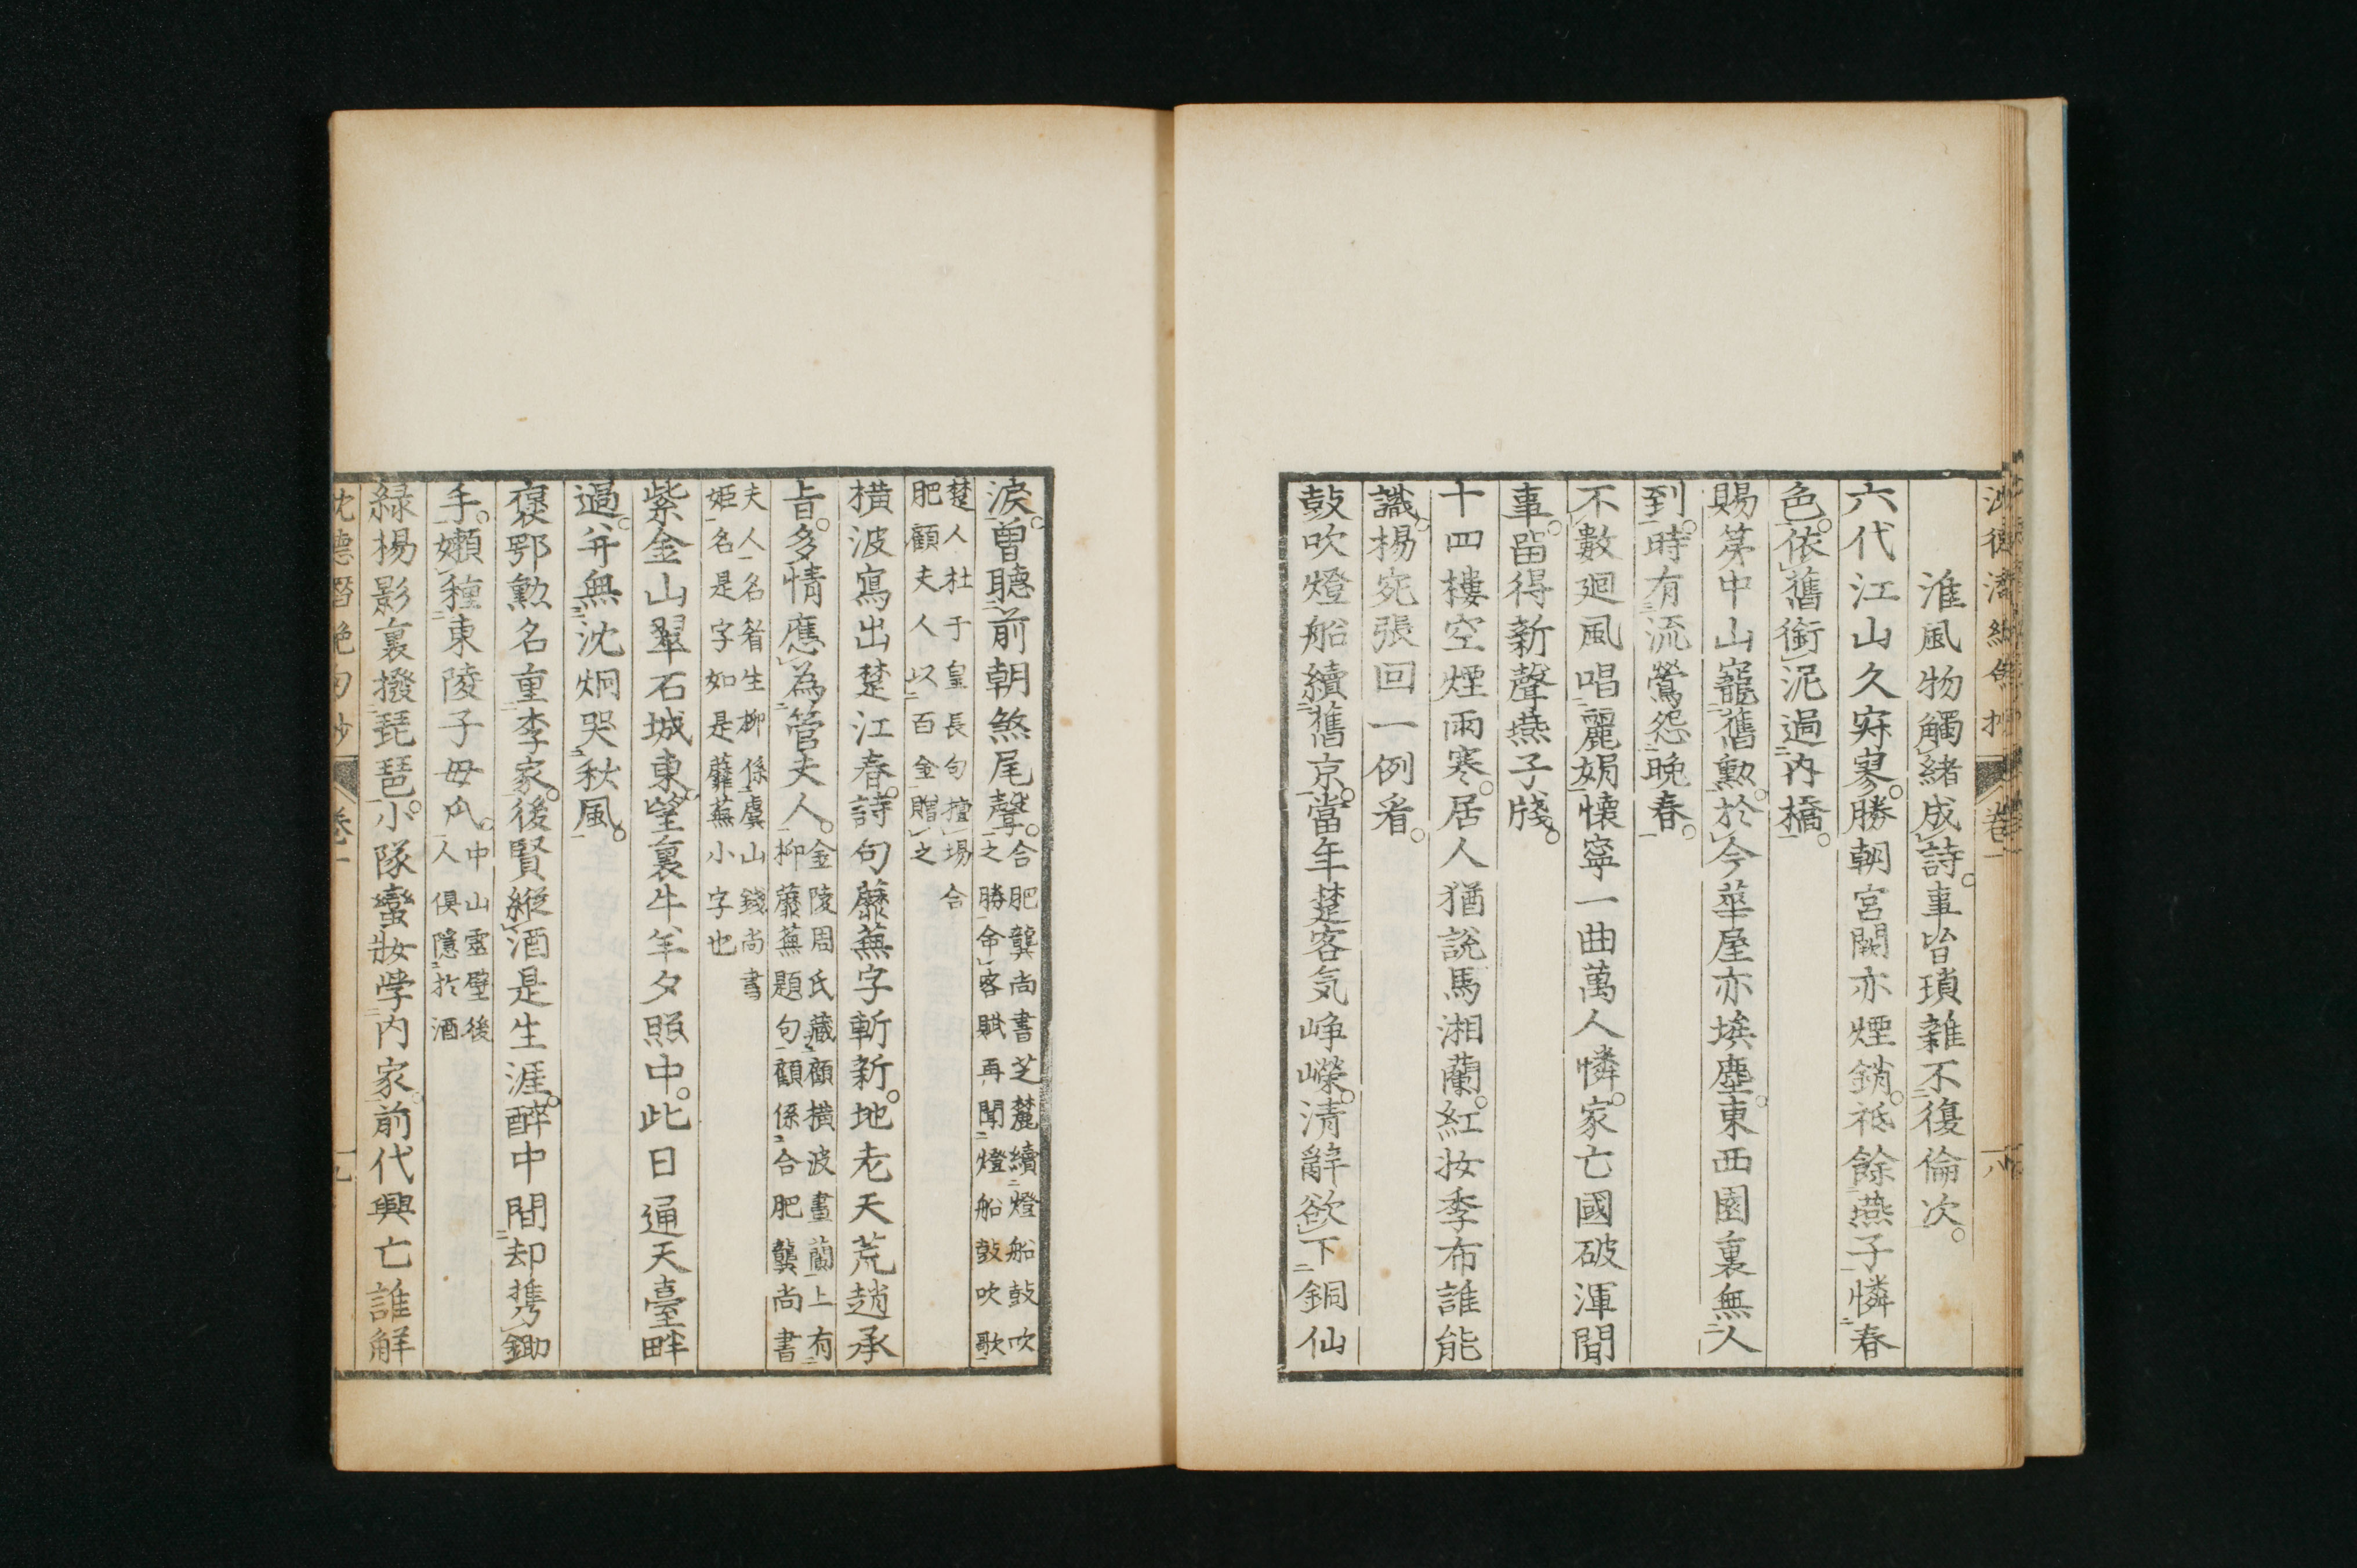 淮風物觸緒成詩。事皆瑣雜不復倫次。
六代江山久㝛寥。勝朝宮闕亦煙銷。祗餘燕子憐春
色。依舊銜泥過內橋。
賜第中山寵舊勲。於今華屋亦埃塵。東西園裏無人
到。時有流鶯怨晚春。
不數廻風唱麗娟。懷寧一曲萬人憐。家亡國破渾閒
事。畱得新聲燕子牋。
十四樓空煙雨寒。居人猶說馬湘蘭。紅妝季布誰能
識。楊宛張回一例看。
鼓吹燈船續舊京。當年楚客気崢嶸。清辭欲下銅仙
淚。曾聽前朝煞尾聲。
合肥龔尚書芝麓續燈船鼓吹
之勝命客賦再聞燈船鼓吹歌
楚人杜于皇長句擅場合
肥顧夫人以百金贈之
橫波寫出楚江春。詩句蘼蕪字斬新。地老天荒趙承
旨。多情應為管夫人。
金陵周氏藏顧橫波畫蘭上有
柳蘼蕪題句顧係合肥龔尚書
夫人名眉生柳係虞山錢尚書
姬名是字如是蘼蕪小字也
紫金山翠石城東。望裏牛羊夕照中。此日通天臺畔
過。并無沈炯哭秋風。
褒鄂勲名重李家。後賢縱酒是生涯。醉中間却携鋤
手。嬾種東陵子母瓜。
中山靈璧後
人俱隱於酒
緑楊影裏撥琵琶。小隊蠻妝学內家。前代興亡誰解
沈德潛絶句抄 卷一 十九